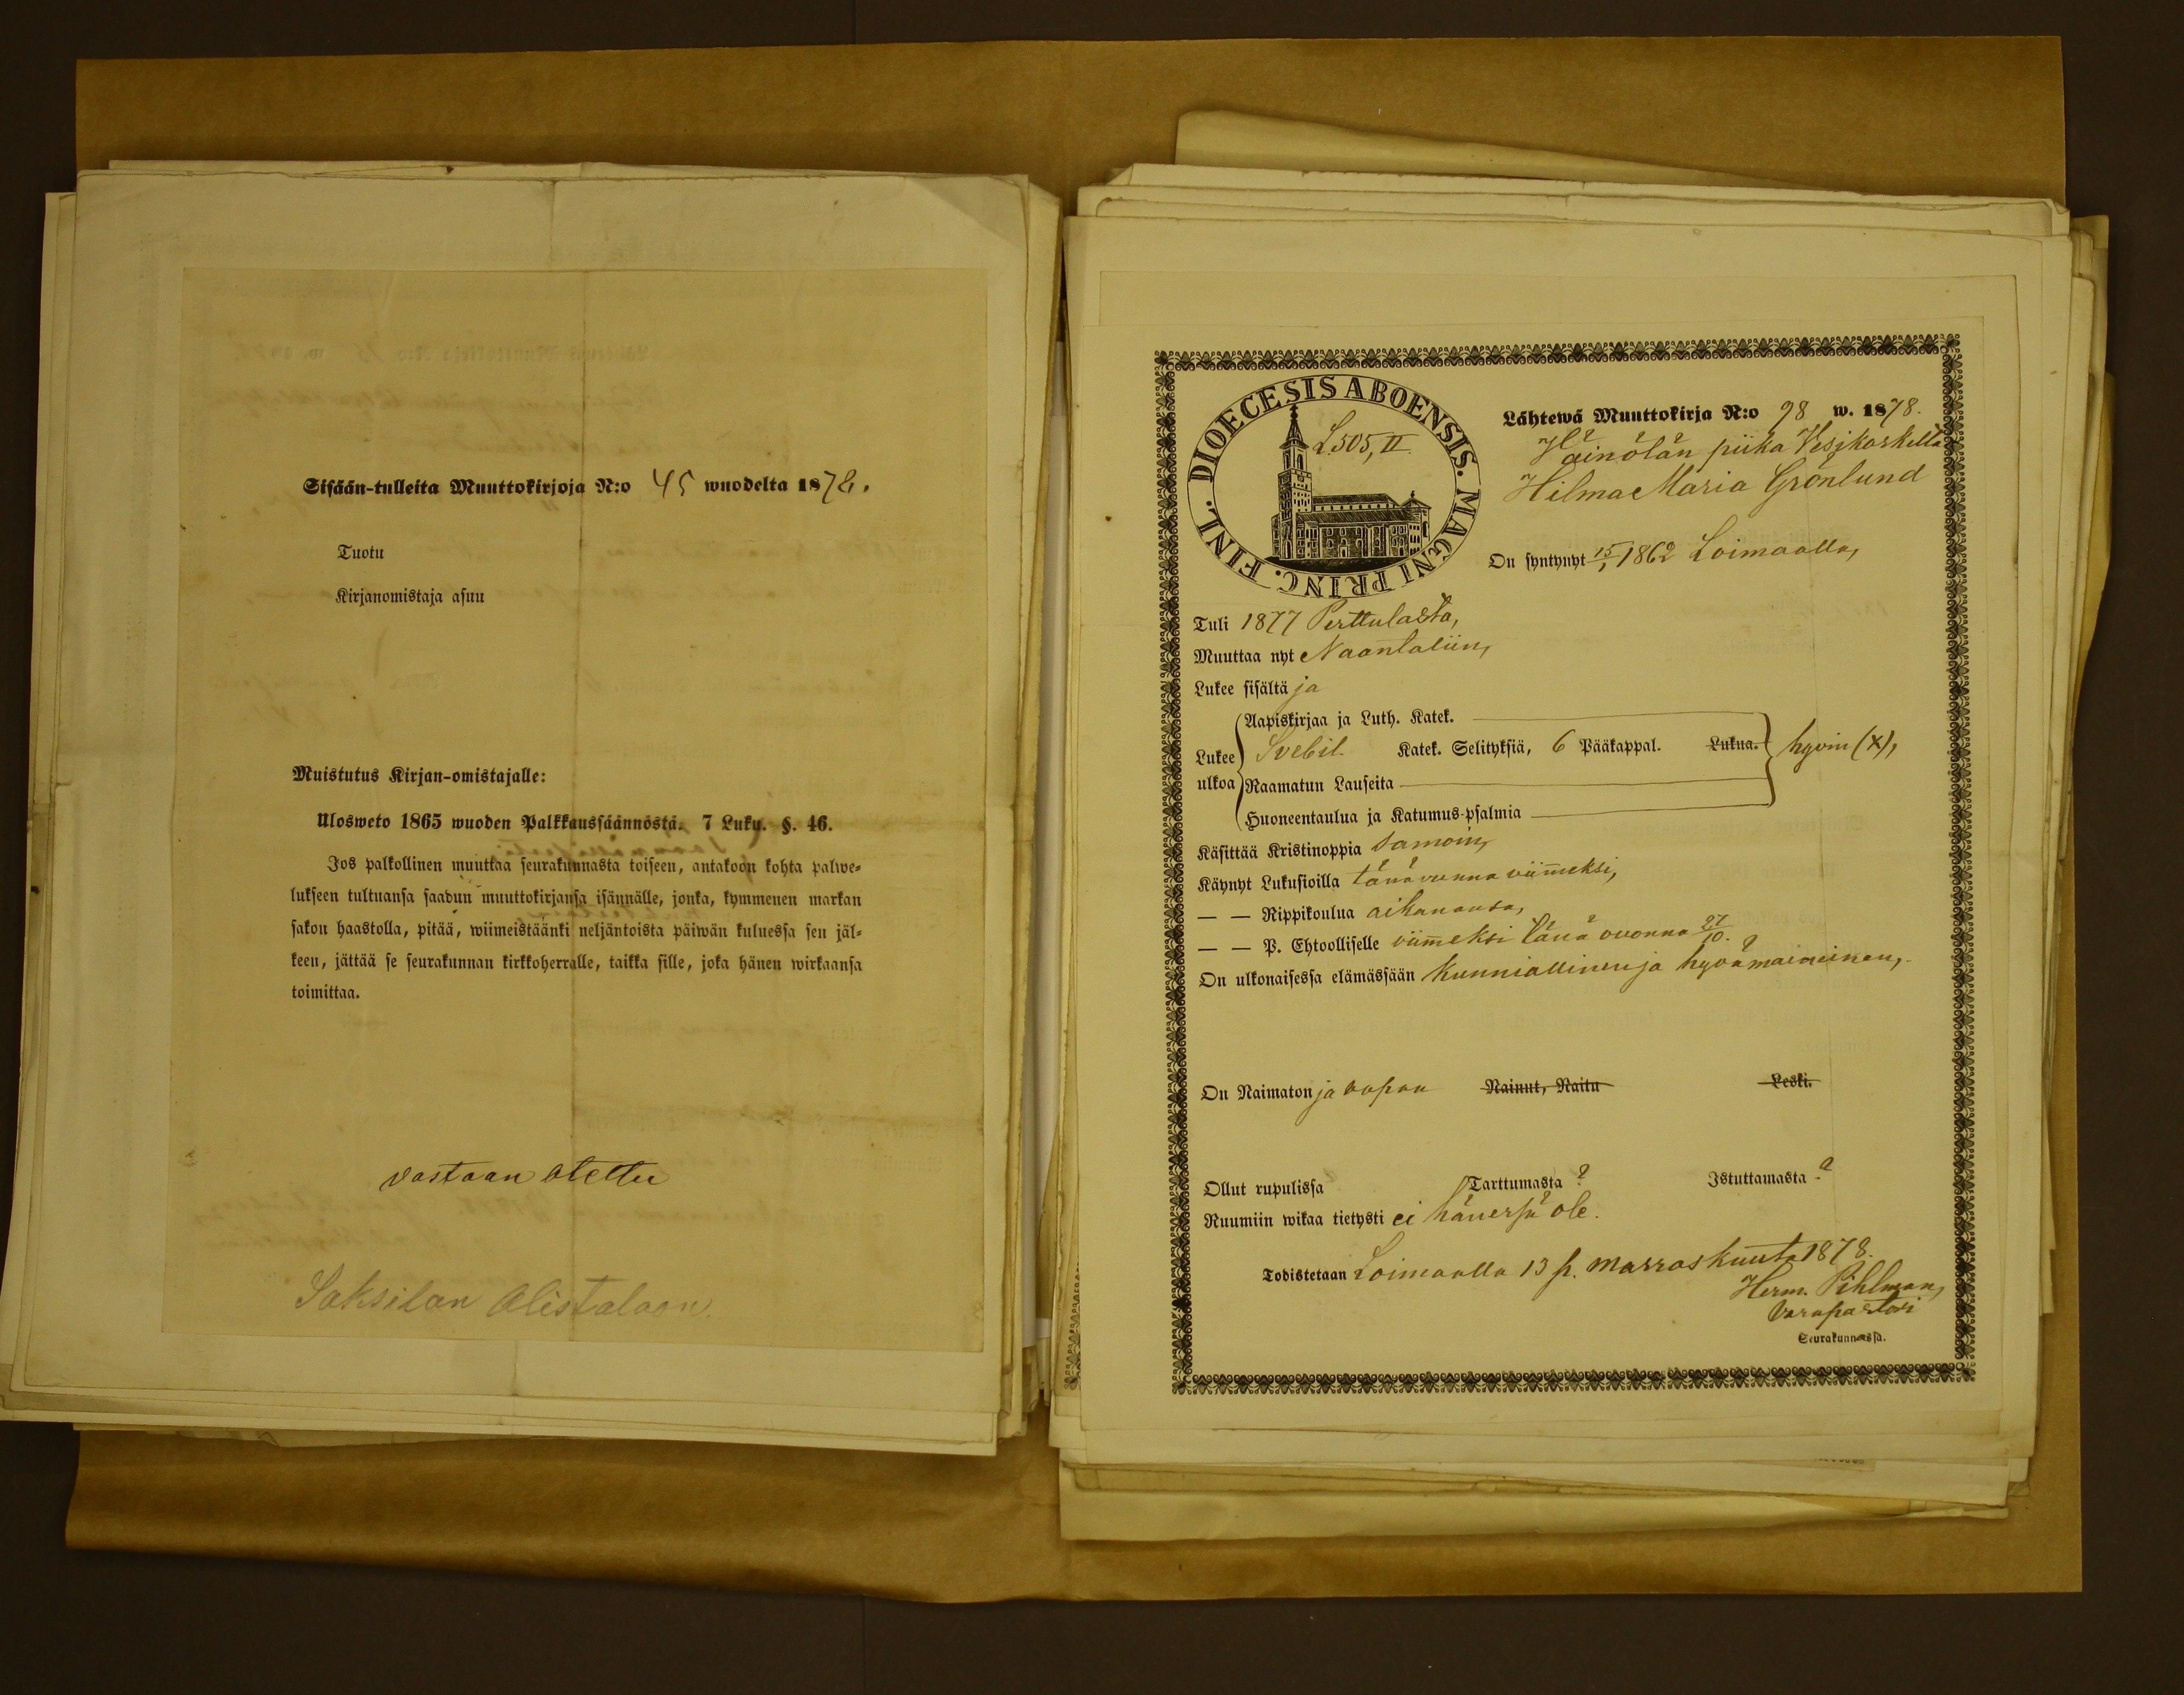 Sisään-tulleita Muuttokirjoja N:o 45 wuodelta 1878.
Tuotu
Kirjanomistaja asuu
Muistutus Kirjan-omistajalle:
Ulosweto 1865 wuoden Palkkaussäännöstä. 7 Luku. §. 46.
Jos palkollinen muuttaa seurakunnasta toiseen, antakoon kohta palwe-
lukseen tultuansa saadun muuttokirjansa isännälle, jonka, kymmenen markan
sakon haastolla, pitää, wiimeistäänki neljäntoista päiwän kuluessa sen jäl-
keen, jättää se seurakunnan kirkkoherralle, taikka sille, joka hänen wirkaansa
toimittaa.
vastaan otettu
Saksilan Alistaloon.
DIOECESIS ABOENSIS. MAGNI PRINC. FINL.
L.505, II.
Lähtewä Muuttokirja N:o 98 w. 1878.
Häinölän piika Vesikoskella
Hilma Maria Grönlund
On syntynyt 15/1 1862 Loimaalla,
Tuli 1877 Perttulasta,
Muuttaa nyt Naantaliin,
Lukee sisältä ja
Aapiskirjaa ja Luth. Katek.
Lukee Svebil. Katek. Selityksiä, 6 Pääkappal. Lukua. hyvin (x),
ulkoa Raamatun Lauseita
Huoneentaulua ja Katumus-psalmia
Käsittää Kristinoppia samoin,
Käynyt Lukusioilla tänä vuonna viimeksi,
— — Rippikoulua aikanansa,
— — P. Ehtoolliselle viimeksi tänä vuonna 27/10.
On ulkonaisessa elämässään kunniallinen ja hyvämaineinen,
On Naimaton ja vapaa Nainut, Naitu Leski.
Ollut rupulissa Tarttumasta ? Istuttamasta ?
Ruumiin wikaa tietysti ei hänessä ole.
Todistetaan Loimaalla 13 p. Marraskuuta 1878.
Herm. Pihlman,
Varapastori
Seurakunnassa.